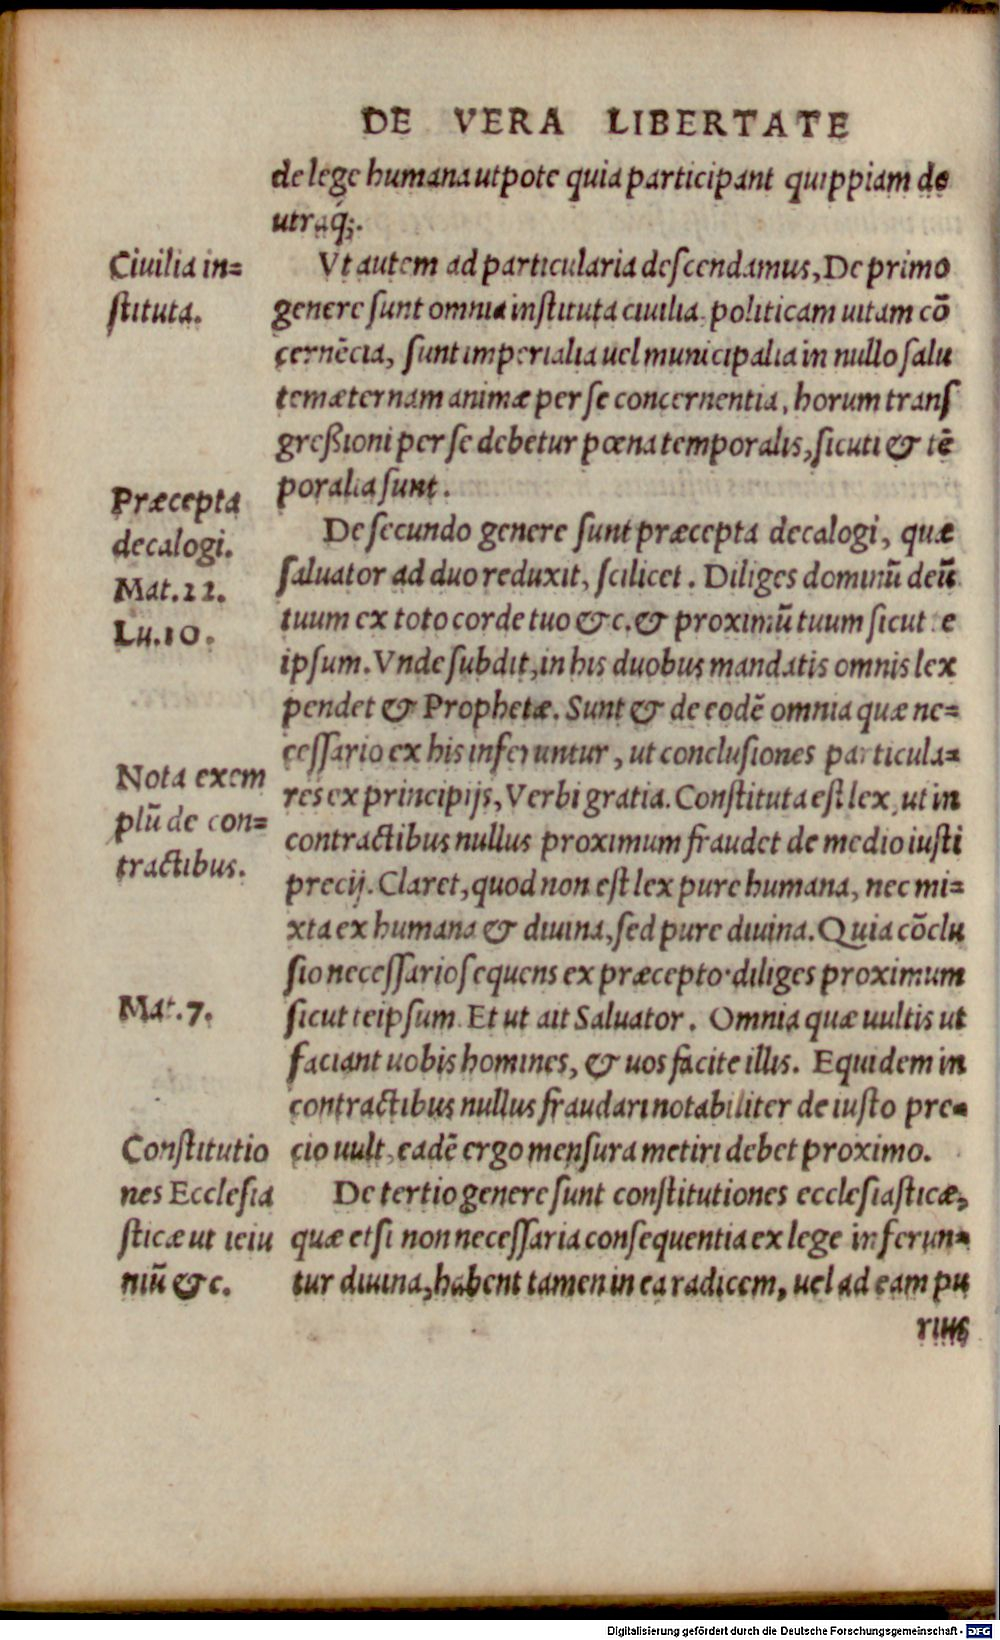 DE VERA LIBERTATE
de lege humana utpote quia participant quippiam de
utraq́;.
Ciuilia in=
stituta.
Vt autem ad particularia descendamus, De primo
genere sunt omnia instituta ciuilia politicam uitam cō
cernēcia, sunt imperialia uel municipalia in nullo salu
tem æternam animæ per se concernentia, horum transf
greßioni per se debetur pœna temporalis, sicuti & tē
poralia sunt.
Præcepta
decalogi.
Mat.22.
Lu.10.
De secundo genere sunt præcepta decalogi, quæ
saluator ad duo reduxit, scilicet. Diliges dominū deū
tuum ex toto corde tuo &c. & proximū tuum sicut te
ipsum. Vnde subdit, in his duobus mandatis omnis lex
pendet & Prophetæ. Sunt & de eodē omnia quæ ne=
cessario ex his inferuntur, ut conclusiones particula=
res ex principijs, Verbi gratia. Constituta est lex, ut in
contractibus nullus proximum fraudet de medio iusti
precij. Claret, quod non est lex pure humana, nec mi=
xta ex humana & diuina, sed pure diuina. Quia cōclu
sio necessario sequens ex præcepto·diliges proximum
sicut teipsum. Et ut ait Saluator. Omnia quæ uultis ut
faciant uobis homines, & uos facite illis. Equidem in
contractibus nullus fraudari notabiliter de iusto pre=
cio uult, eadē ergo mensura metiri debet proximo.
Nota exem
plū de con=
tractibus.
Mat.7.
Constitutio
nes Ecclesia
sticæ ut ieiu
niū &c.
De tertio genere sunt constitutiones ecclesiasticæ,
quæ etsi non necessaria consequentia ex lege inferun=
tur diuina, habent tamen in ea radicem, uel ad eam pu
rius
Digitalisierung gefördert durch die Deutsche Forschungsgemeinschaft - DFG